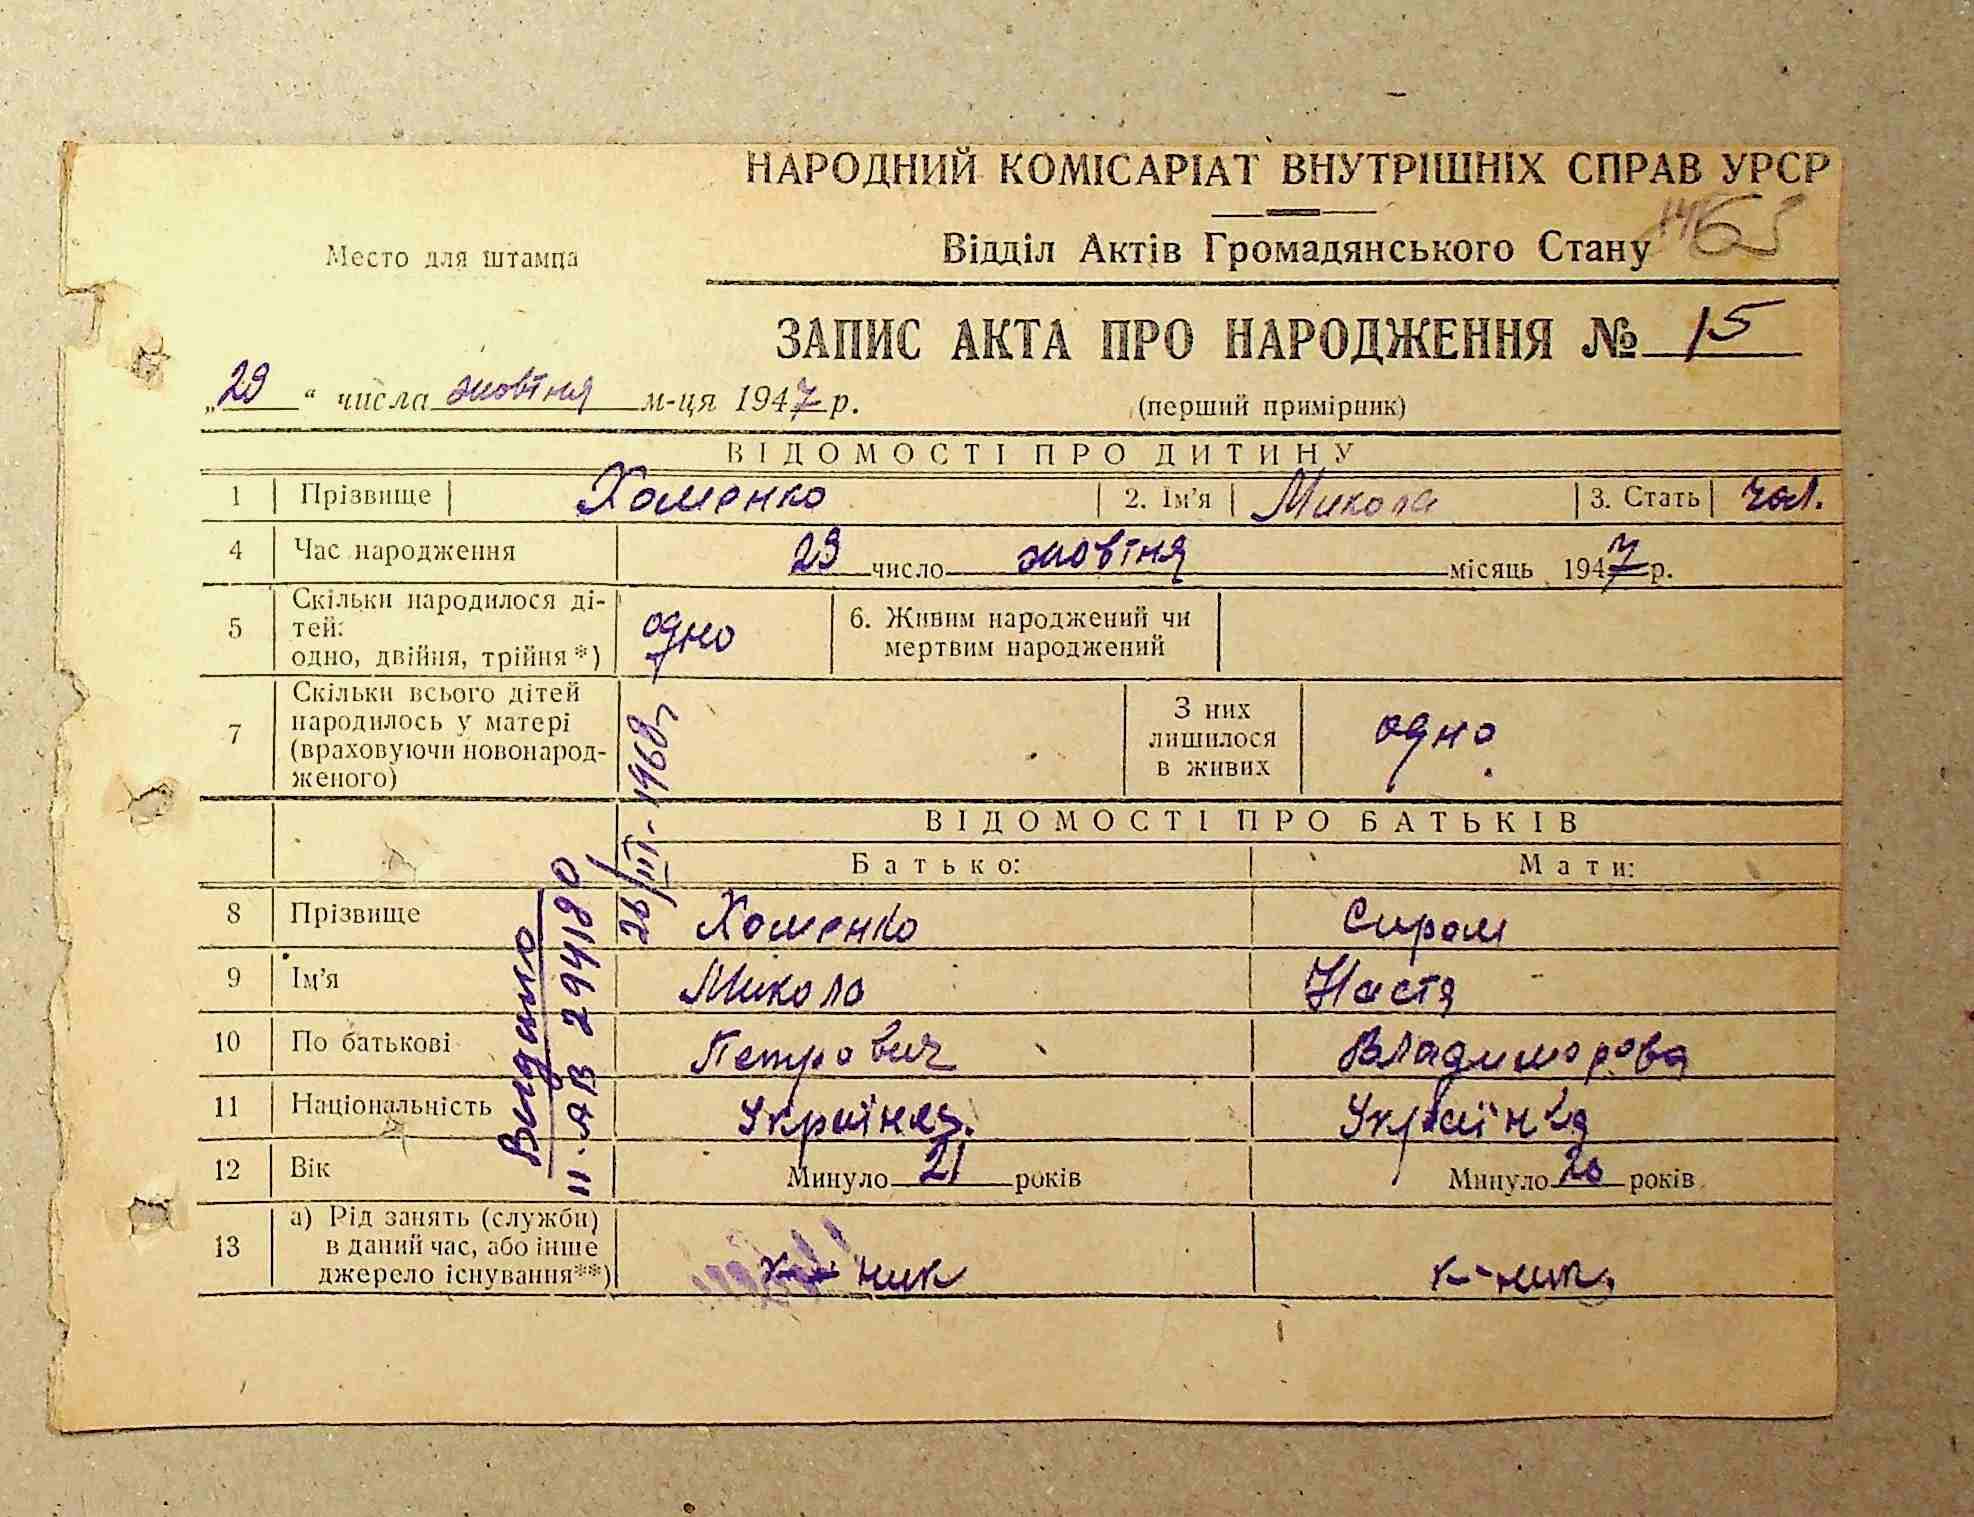 НАРОДНИЙ КОМІСАРІАТ ВНУТРІШНІХ СПРАВ УРСР
Место для штампа
Відділ Актів Громадянського Стану
ЗАПИС АКТА ПРО НАРОДЖЕННЯ № 15
„29“ числа жовтня м-ця 1947 р.
(перший примірник)
ВІДОМОСТІ ПРО ДИТИНУ
1 Прізвище Хоменко 2. Ім'я Микола 3. Стать чол.
4 Час народження 23 число жовтня місяць 1947 р.
5 Скільки народилося ді-
тей:
одно, двійня, трійня*) одно
6. Живим народжений чи
мертвим народжений
7 Скільки всього дітей
народилось у матері
(враховуючи новонарод-
женого)
З них
лишилося
в живих
одно.
ВІДОМОСТІ ПРО БАТЬКІВ
Батько: Мати:
8 Прізвище Хоменко Сиром
9 Ім'я Микола Настя
10 По батькові Петрович Владимирова
11 Національність Українец. Українка
12 Вік Минуло 21 років Минуло 20 років
13 а) Рід занять (служби)
в даний час, або інше
джерело існування**)
к-ник к-ник.
Видано
II-АВ 294180
26/III-1968г